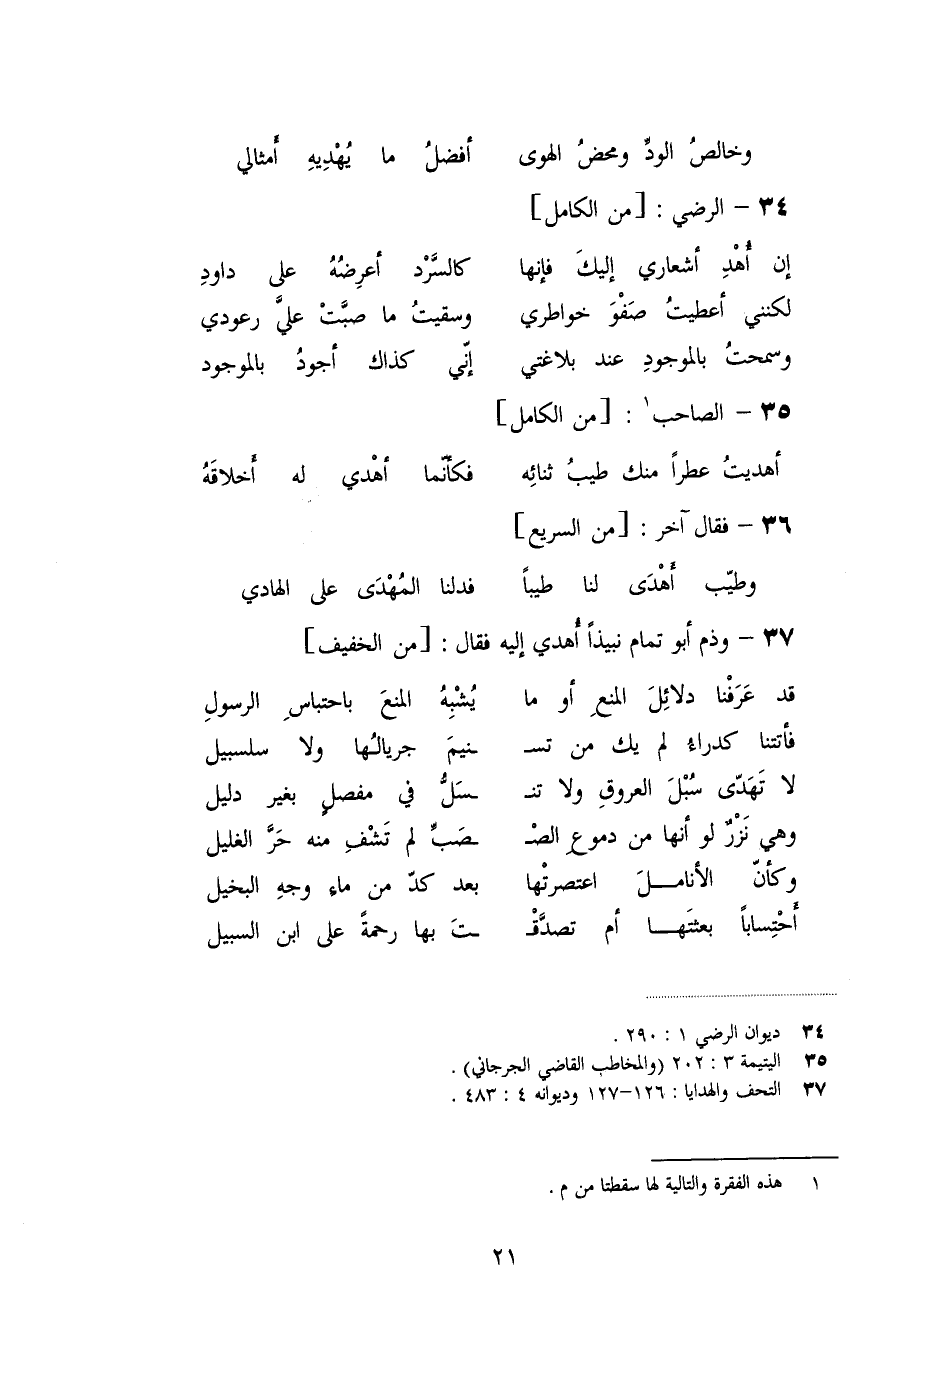 وخالصُ الودِّ ومحضُ الهوى أفضلُ ما يُهْدِيهِ أَمثالي
٣٤ – الرضي : [من الكامل]
إن أُهْدِ أشعاري إليكَ فإنها كالسَّرْد أعرِضُهُ على داودِ
لكنني أعطيتُ صَفْوَ خواطري وسقيتُ ما صبَّتْ عليَّ رعودي
وسمحتُ بالموجودِ عند بلاغتي إنّي كذاك أجودُ بالموجود
٣٥ – الصاحب١ : [من الكامل]
أهديتُ عطراً منك طيبُ ثنائِه فكأنّما أهْدي له أَخلاقَهُ
٣٦ – فقال آخر : [من السريع]
وطيّب أَهْدَى لنا طيباً فدلنا المُهْدَى على الهادي
٣٧ – وذم أبو تمام نبيذاً أُهدي إليه فقال : [من الخفيف]
قد عَرَفْنا دلائِلَ المنعِ أو ما يُشْبِهُ المنعَ باحتباسِ الرسولِ
فأتتنا كدراءُ لم يك من تسـ ـنيمَ جريالُها ولا سلسبيل
لا تَهَدّى سُبْلَ العروقِ ولا تنـ ـسَلُّ في مفصلٍ بغير دليل
وهي نَزْرٌ لو أنها من دموعِ الصْـ ـصَبِّ لم تَشْفِ منه حَرَّ الغليل
وكأنّ الأنامـلَ اعتصرتْها بعد كدّ من ماءِ وجهِ البخيل
أَحْتِساباً بعثتَهـا أم تصدَّقْـ ـتَ بها رحمةً على ابن السبيل
٣٤ ديوان الرضي ١ : ٢٩٠ .
٣٥ اليتيمة ٣ : ٢٠٢ (والمخاطب القاضي الجرجاني) .
٣٧ التحف والهدايا : ١٢٦–١٢٧ وديوانه ٤ : ٤٨٣ .
١ هذه الفقرة والتالية لها سقطتا من م .
٢١